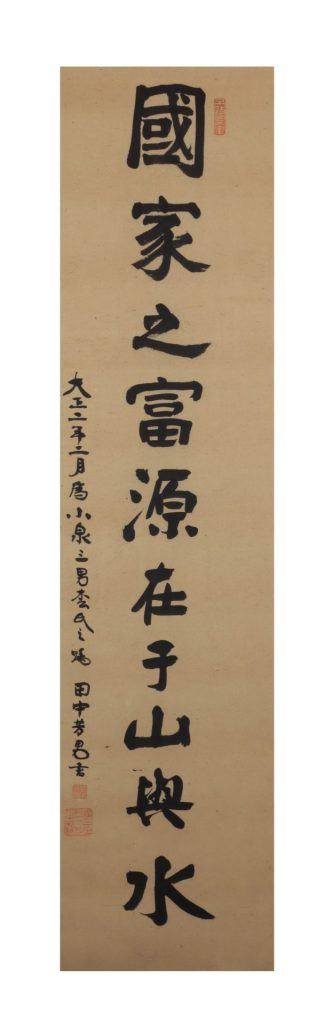 國家之富源在于山與水
大正二年二月為小泉三男氏之嘱 田中芳男書